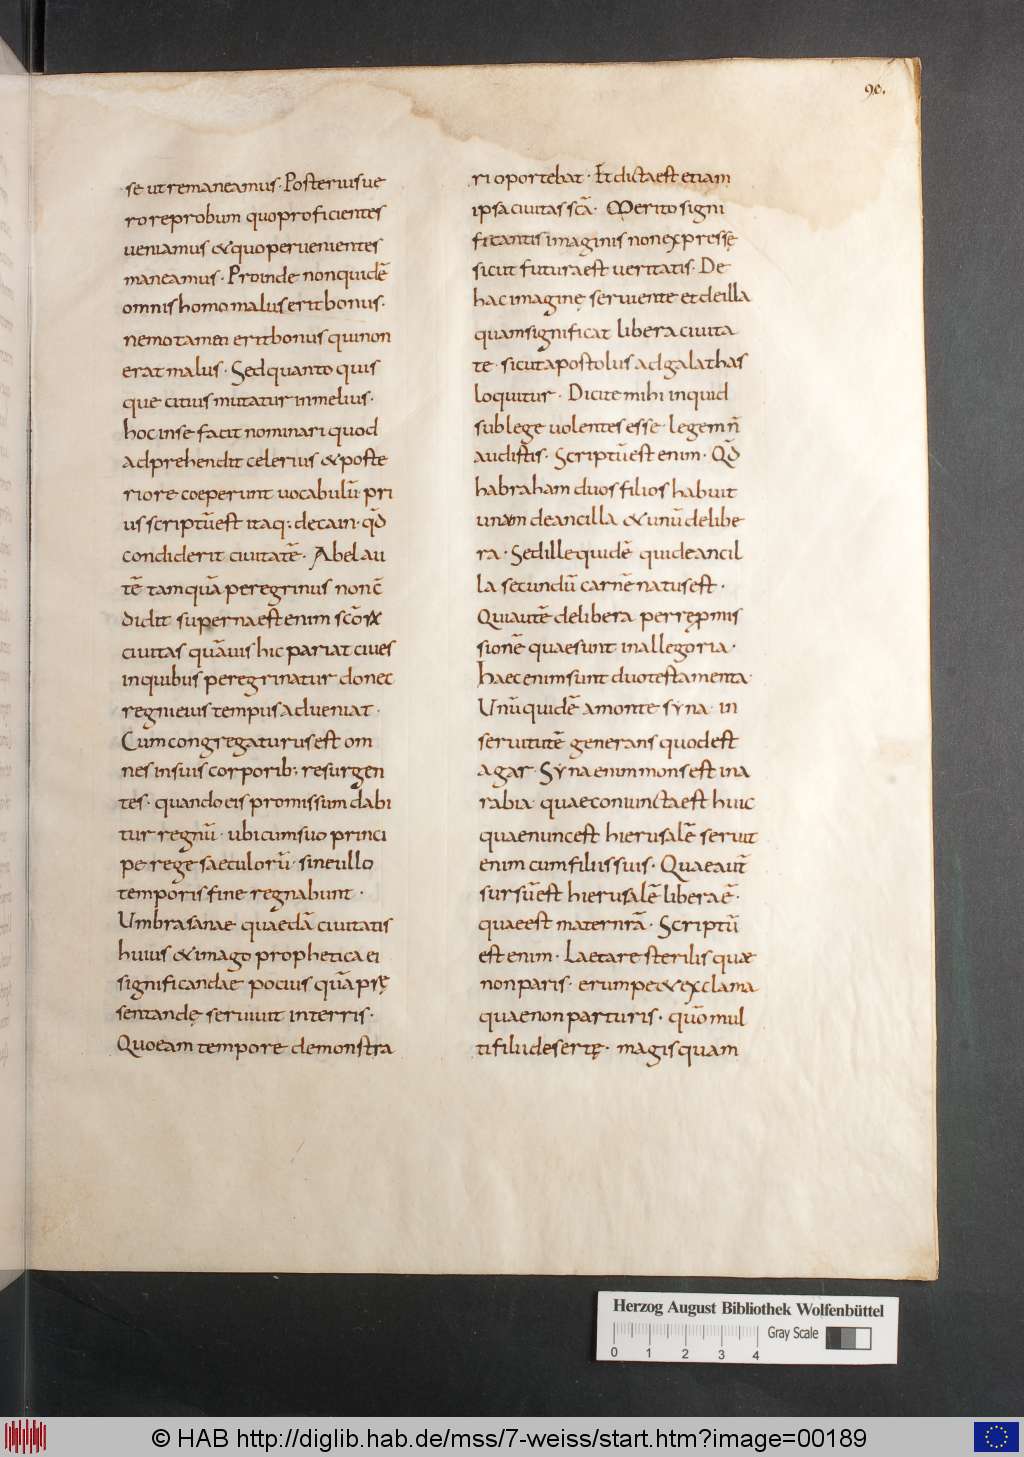 90.
se ut remaneamus · Posterius ue
ro reprobum quo proficientes
ueniamus & quo peruenientes
maneamus · Proinde non quidē
omnis homo malus erit bonus ·
nemo tamen erit bonus qui non
erat malus · Sed quanto quis
que citius mutatur in melius ·
hoc in se facit nominari quod
adprehendit celerius & poste
riore coeperunt uocabulū · pri
us scriptū est itaq; de cain · qđ
condiderit ciuitatē · Abel au
tē tamquā peregrinus non c̄
didit superna est enim scōrꝝ
ciuitas quāuis hic pariat ciues
in quibus peregrinatur donec
regni eius tempus adueniat ·
Cum congregaturus est om
nes in suis corporib; resurgen
tes · quando eis promissum dabi
tur regnū · ubi cum suo princi
pe rege saeculorū · sine ullo
temporis fine regnabunt ·
Umbra sanae quaedā ciuitatis
huius & imago prophetica ei
significandae pocius quā prę
sentandę seruiuit in terris ·
Quo eam tempore demonstra
ri oportebat · Et dicta est etiam
ipsa ciuitas scā · Merito signi
ficantis imaginis non expressę
sicut futura est ueritatis · De
hac imaginę seruiente et de illa
quam significat libera ciuita
te · sicut apostolus ad galathas
loquitur · Dicite mihi inquid
sub lege uolentes esse · legem n̄
audistis · Scriptū est enim · Qđ
habraham duos filios habuit
unam de ancilla & unū de libe
ra · Sed ille quidē qui de ancil
la secundū carnē natus est ·
Qui autē de libera per rępmis
sionē quae sunt in allegoria ·
Haec enim sunt duo testamenta ·
Unū quidē a monte syna · in
seruitutē generans quod est
agar · Syna enim mons est in a
rabia quae coniuncta est huic
quae nunc est hierusalē seruit
enim cum filiis suis · Quae aut̄
sursū est hierusalē libera ē ·
quae est mater nrā · Scriptū
est enim · Laetare sterilis quae
non paris · erumpe & exclama
quae non parturis · quō mul
ti filii desertę · magis quam
Herzog August Bibliothek Wolfenbüttel
Gray Scale
0 1 2 3 4
© HAB http://diglib.hab.de/mss/7-weiss/start.htm?image=00189